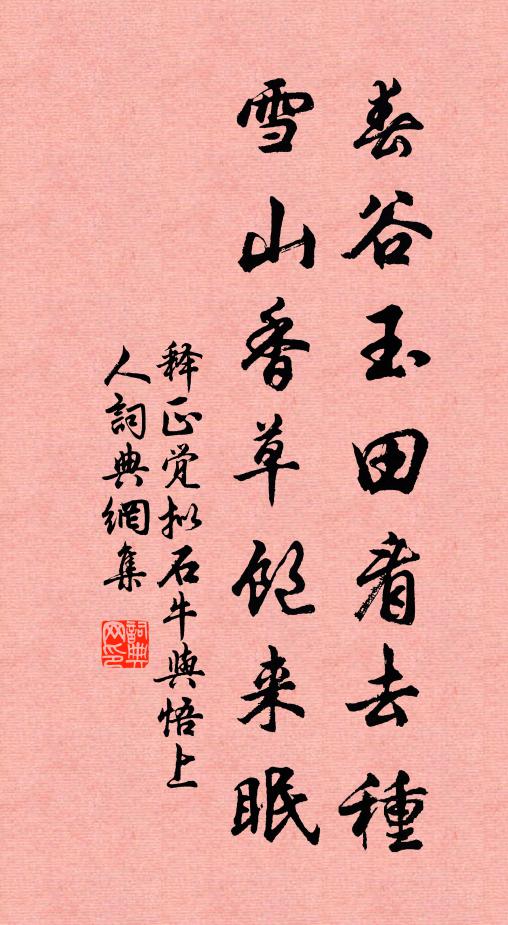 春谷玉田看去種
雪山香草飽来眠
释正覚拟石牛與悟上
人詞典網集
詞典
网印